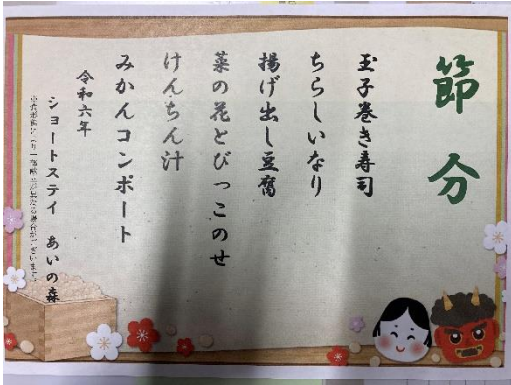 節分
玉子巻き寿司
ちらしいなり
揚げ出し豆腐
菜の花とびっこのせ
けんちん汁
みかんコンポート
令和六年
ショートステイ あいの森